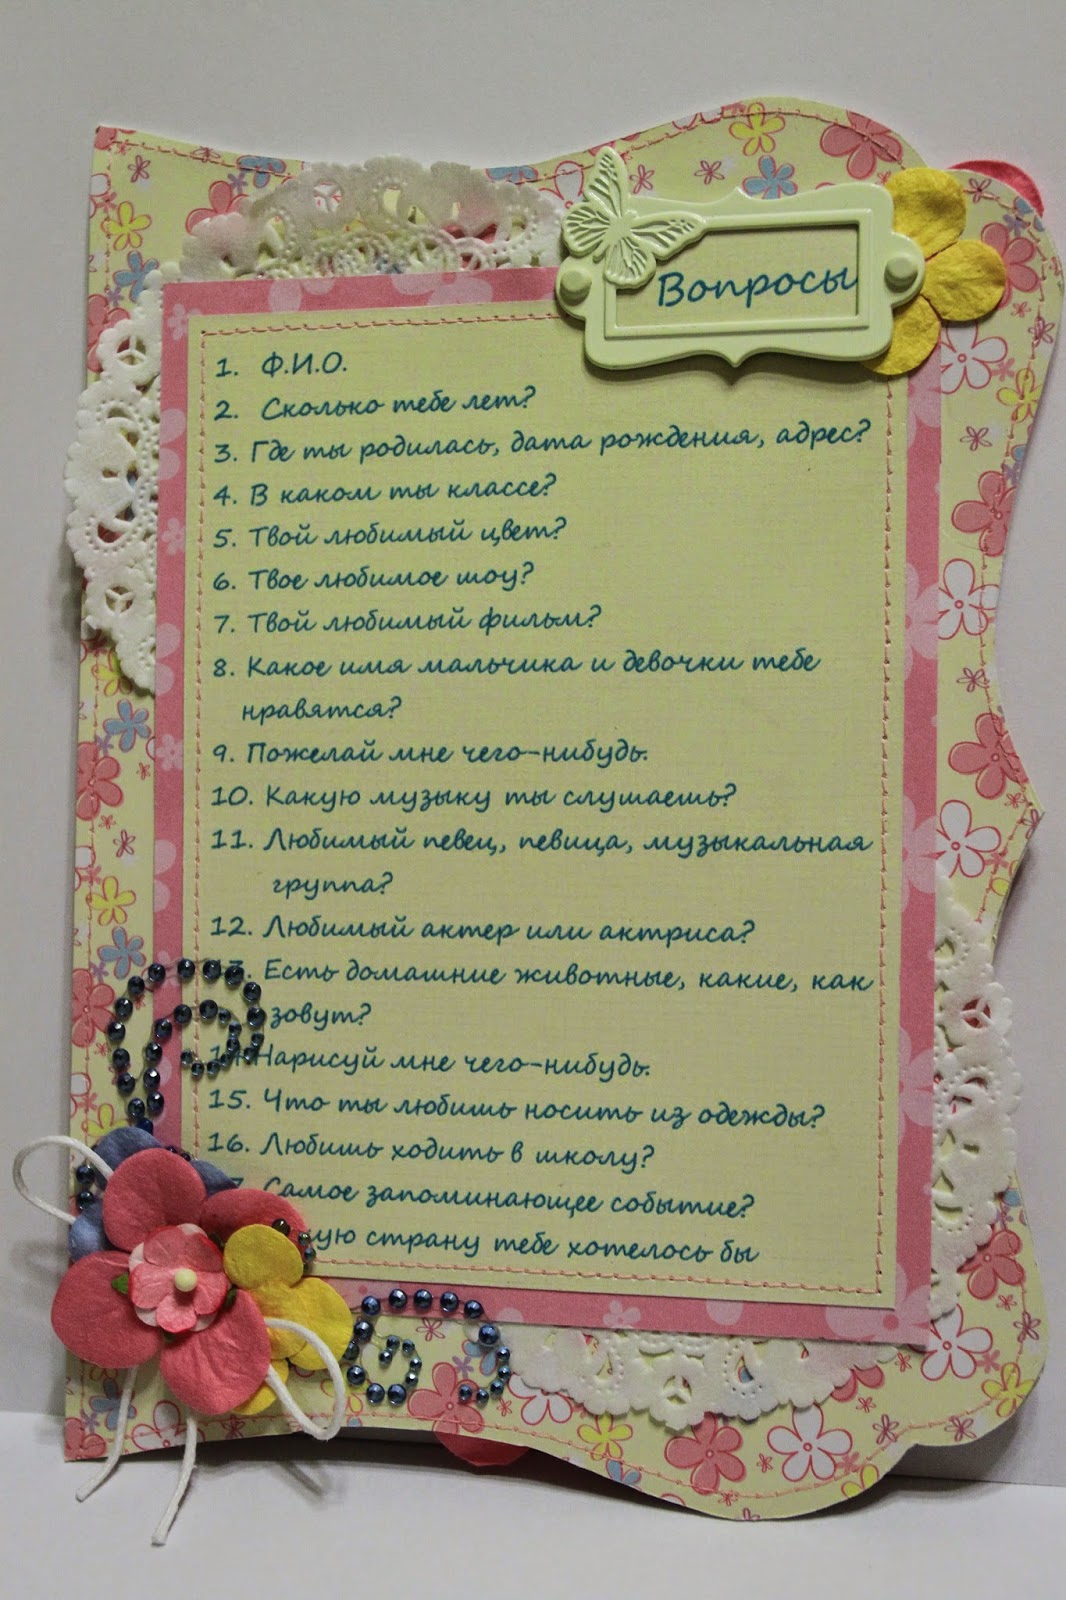 Вопросы
1. Ф.И.О.
2. Сколько тебе лет?
3. Где ты родилась, дата рождения, адрес?
4. В каком ты классе?
5. Твой любимый цвет?
6. Твое любимое шоу?
7. Твой любимый фильм?
8. Какое имя мальчика и девочки тебе
нравятся?
9. Пожелай мне чего-нибудь.
10. Какую музыку ты слушаешь?
11. Любимый певец, певица, музыкальная
группа?
12. Любимый актер или актриса?
13. Есть домашние животные, какие, как
зовут?
14. Нарисуй мне чего-нибудь.
15. Что ты любишь носить из одежды?
16. Любишь ходить в школу?
Самое запоминающее событие?
страну тебе хотелось бы